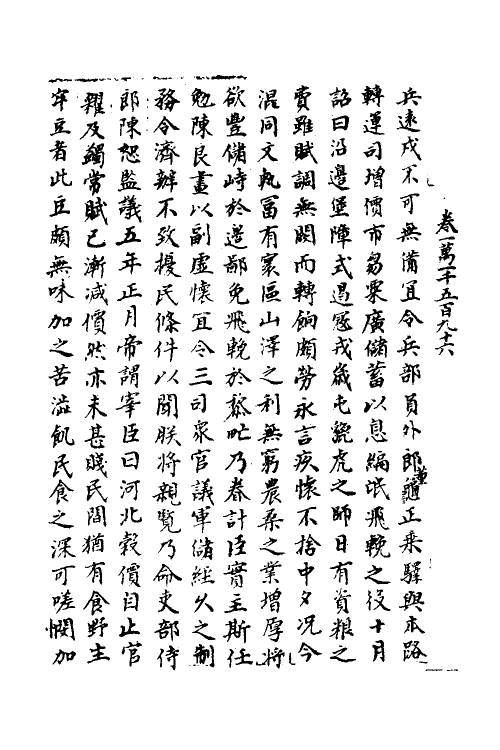 卷一萬一千五百九十六
兵遠戍不可無備宜令兵部員外郎董龜正乘驛與本路
轉運司增價市芻粟廣儲蓄以息編氓飛輓之役十月
詔曰沿邊堡障式遏冦戎歲屯貔虎之師日有資粮之
費雖賦調無闕而轉餉頗勞永言疚懷不捨中夕况今
混同文軌冨有寰區山澤之利無窮農桑之業增厚將
欲豐儲峙於邊鄙免飛輓於黎甿乃眷計臣實主斯任
勉陳良畫以副虛懷宜令三司衆官議軍儲經久之制
務令濟辦不致擾民條件以聞朕將親覽乃命吏部侍
郎陳恕監議五年正月帝謂宰臣曰河北榖價自止官
糴及蠲常賦已漸減價然亦未甚賤民間猶有食野生
牢豆者此豆頗無味加之苦澁飢民食之深可嗟憫加